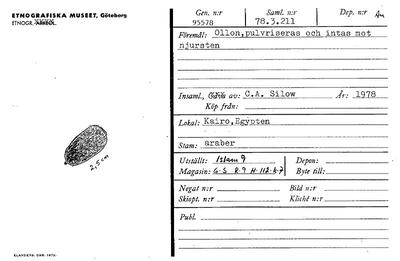 ETNOGRAFISKA MUSEET, Göteborg
ETNOGR.
Gen. n:r Saml. n:r Dep. n:r
95578 78.3.211
Föremål: Ollon,pulvriseras och intas mot
njursten
Insaml., av: C.A. Silow År: 1978
Köp från:
Lokal: Kairo,Egypten
Stam: araber
Utställt: Islam 9 Depon:
Magasin: G-S R-9 H-112-R-7 Byte till:
Negat n:r Bild n:r
Skiopt. n:r Kliché n:r
Publ.
2,5 cm
ELANDERS. GBG. 1975